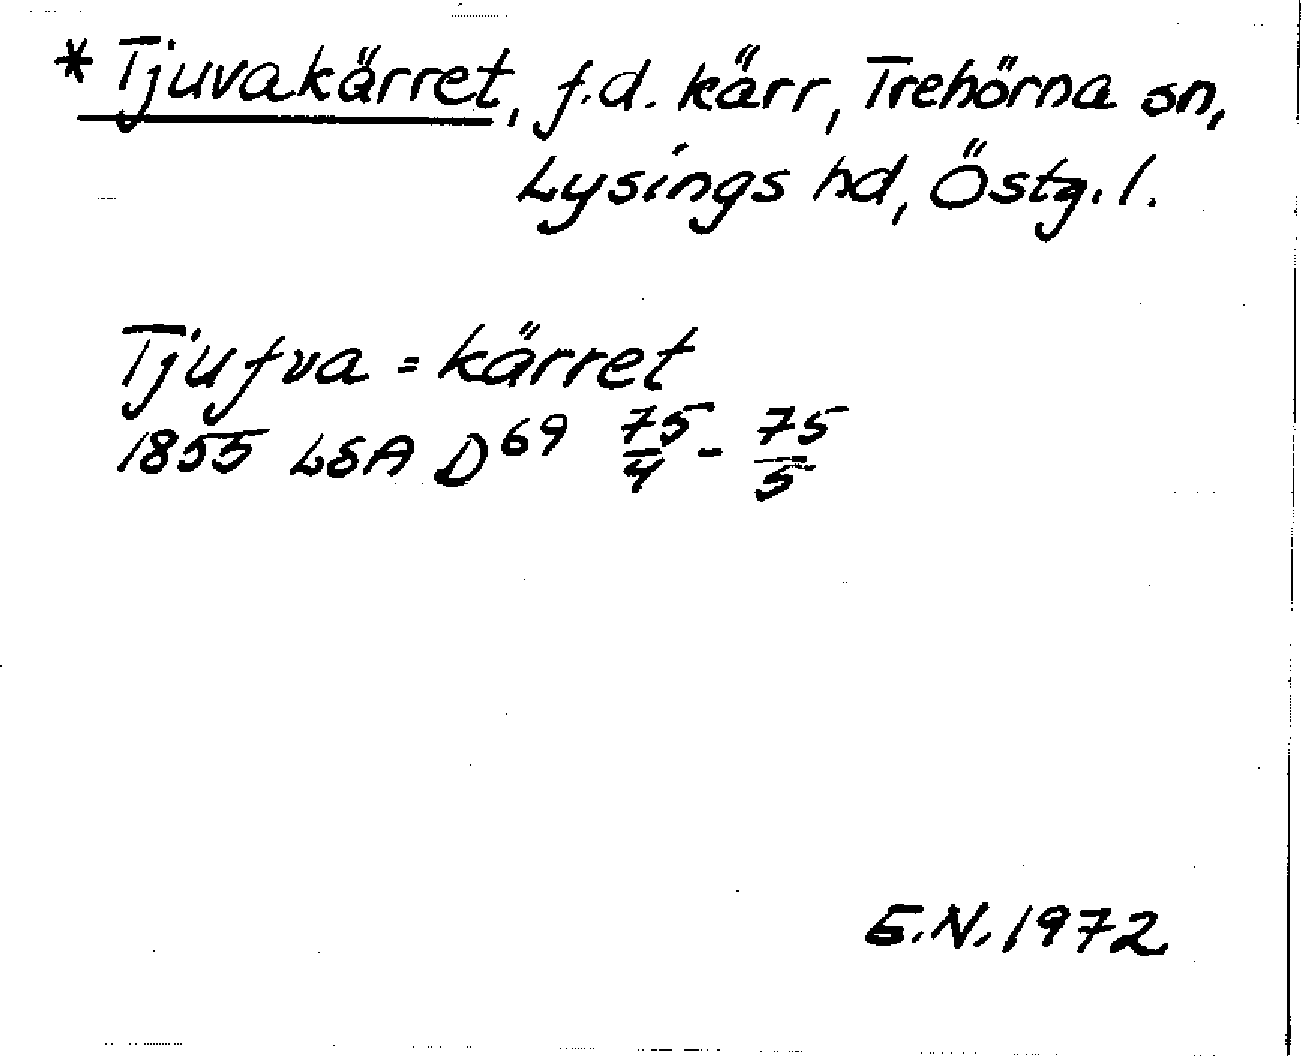 * Tjuvakärret, f.d. kärr, Trehörna sn,
Lysings hd, Östg. l.
Tjufva = kärret
1855 LSA D⁶⁹ 75/4 - 75/5
E.N. 1972